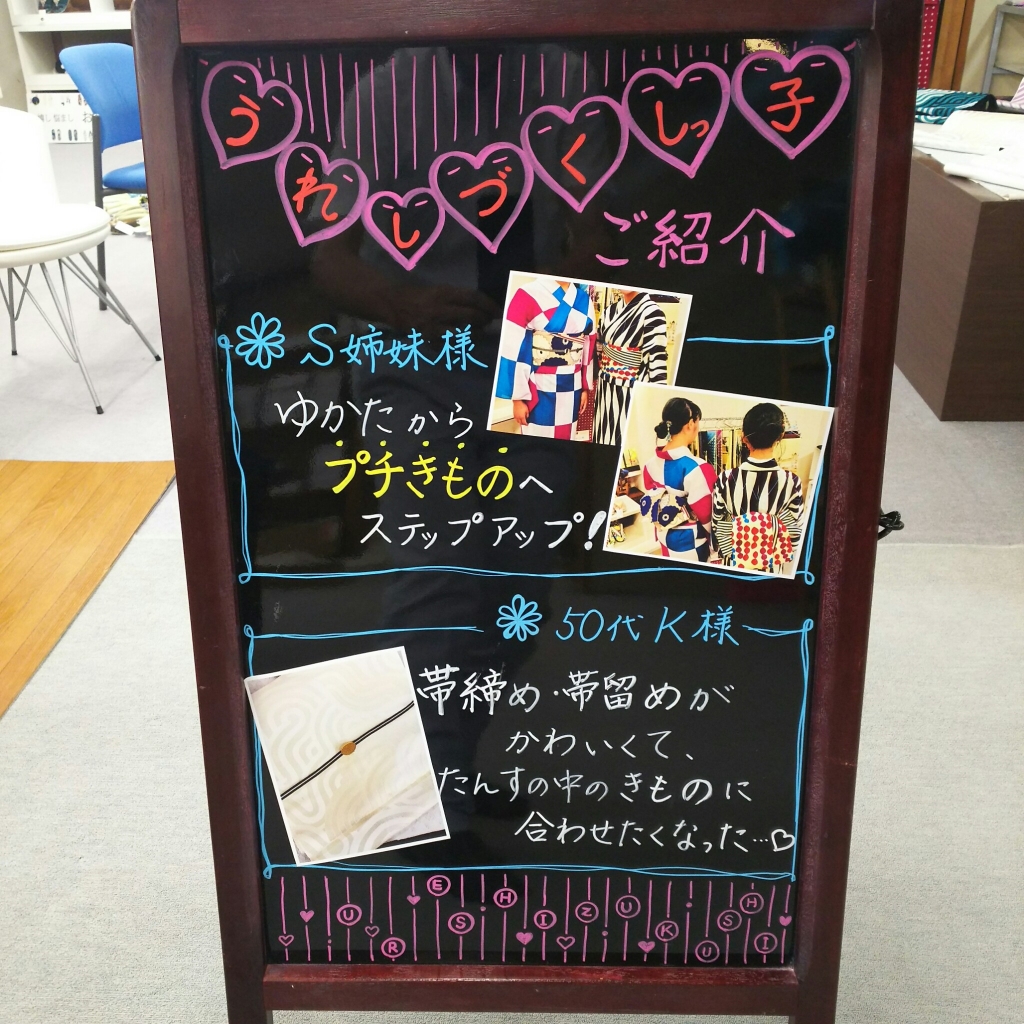 うれしづくしっ子
ご紹介
S姉妹様
ゆかたから
プチきものへ
ステップアップ!
50代K様
帯締め・帯留めが
かわいくて、
たんすの中のきものに
合わせたくなった…♡
URESHIZUKUSHI